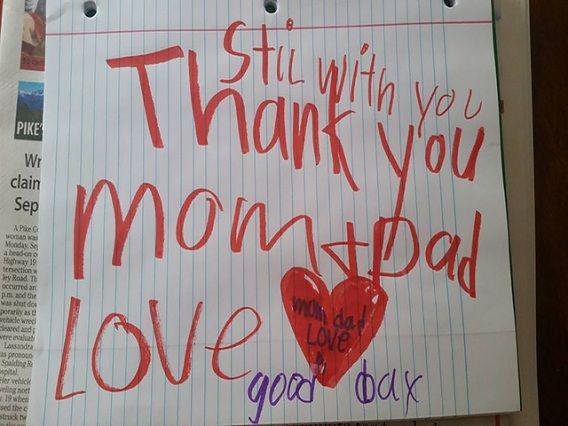 Stil with you
Thank you
mom + Dad
Love
mom dad
Love
good bax
PIKE'
Wr
claim
Sep
A Pike Co
woman was
Monday, Sep
a head-on co
Highway 19
tersection w
ley Road. Th
occurred aro
p.m. and the
was shut do
porarily as th
vehicle wreck
cleared and p
were evaluate
Lassandra
as pronoun
Spalding R
ospital.
Her vehicle
veling nort
. 19 when
sed the c
struck tw